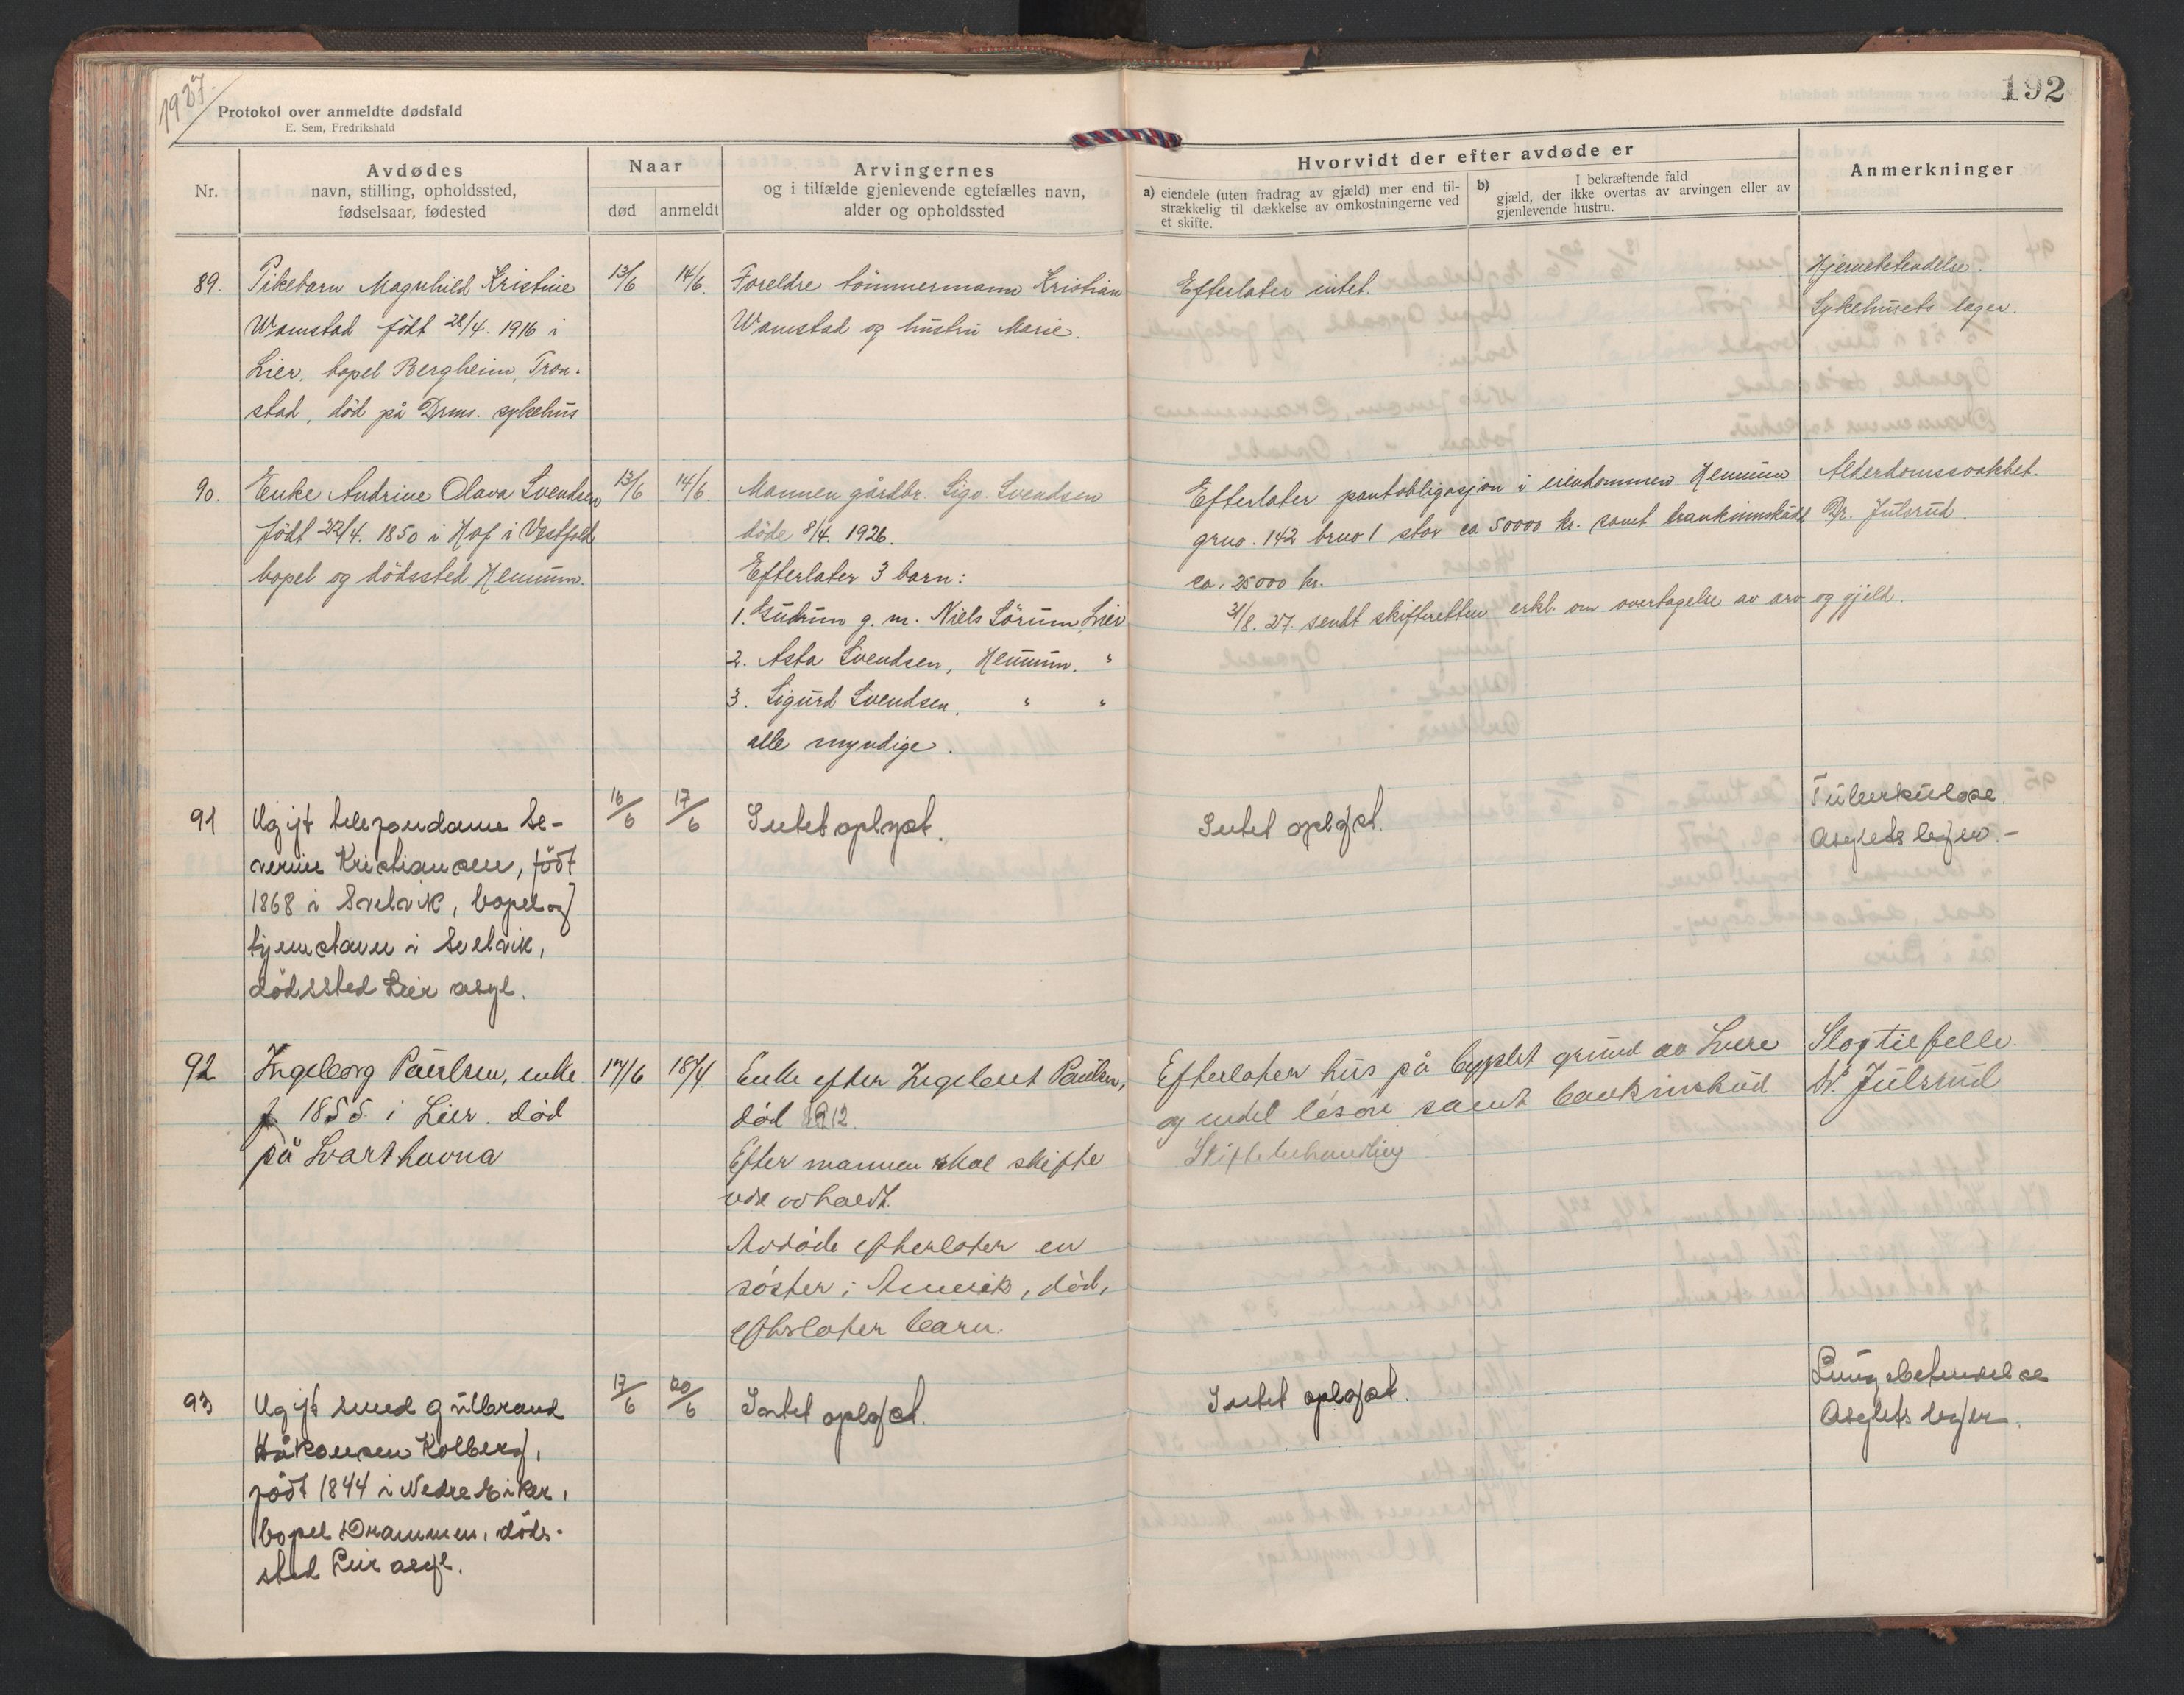 1927.
192
Protokol over anmeldte dødsfald
E. Sem, Fredrikshald
Nr.
Avdødes
navn, stilling, opholdssted,
fødselsaar, fødested
Naar
død
anmeldt
Arvingernes
og i tilfælde gjenlevende egtefælles navn,
alder og opholdssted
Hvorvidt der efter avdøde er
a) eiendele (uten fradrag av gjæld) mer end til-
strækkelig til dækkelse av omkostningerne ved
et skifte.
b) I bekræftende fald
gjæld, der ikke overtas av arvingen eller av
gjenlevende hustru.
Anmerkninger
89.
Pikebarn Magnhild Kristine
Wamstad født 28/4. 1916 i
Lier, bopel Bergheim, Tron-
stad, död på Drms. sykehus
13/6
14/6.
Foreldre tömmermann Kristian
Wamstad og hustru Marie.
Efterlater intet.
Hjernebetendelse.
Sykehusets læger.
90.
Enke Andrine Olava Svendsen
født 22/4. 1850 i Hof i Vestfold
bopel og dödssted Hennum.
13/6
14/6
Mannen gårdbr. Sigv. Svendsen
döde 8/4. 1926.
Efterlater 3 barn:
1. Gudrun g. m. Niels Sörum, Lier
2. Asta Svendsen, Hennum. "
3. Sigurd Svendsen. " "
alle myndige.
Efterlater pantobligasjon i eiendommen Hennum
grno. 142 brno 1 stor ca 50000 kr. samt bankinnskudd
ca. 25000 kr.
31/8. 27. sendt skifteretten erkl. om overtagelse av arv og gjeld.
Alderdomssvakhet.
Dr. Julsrud.
91
Ugift telefondame Se-
verine Kristiansen, född
1868 i Svelvik, bopel og
hjemstavn i Svelvik,
dödssted Lier asyl.
16/6
17/6
Intet oplyst.
Intet oplyst.
Tuberkulose.
Asylets læger. -
92
Ingeborg Paulsen, enke
f. 1855 i Lier. död
på Svarthavna
17/6
18/
Enke efter Ingebret Paulsen,
död 1912.
Efter mannen skal skifte
være avholdt.
Avdöde efterlater en
söster i Amerik, död,
efterlater barn.
Efterlater hus på bygslet grund av
og endel lösöre samt bankinskud
Skiftebehandling
Slagtilfelle.
Dr. Julsrud
93
Ugift smed Gulbrand
Håkonsen Kolberg,
född 1844 i Nedre Eiker,
bopel Drammen, döds-
sted Lier asyl.
17/6
20/6
Intet oplyst.
Intet oplyst.
Lungebetendelse
Asylets læger.